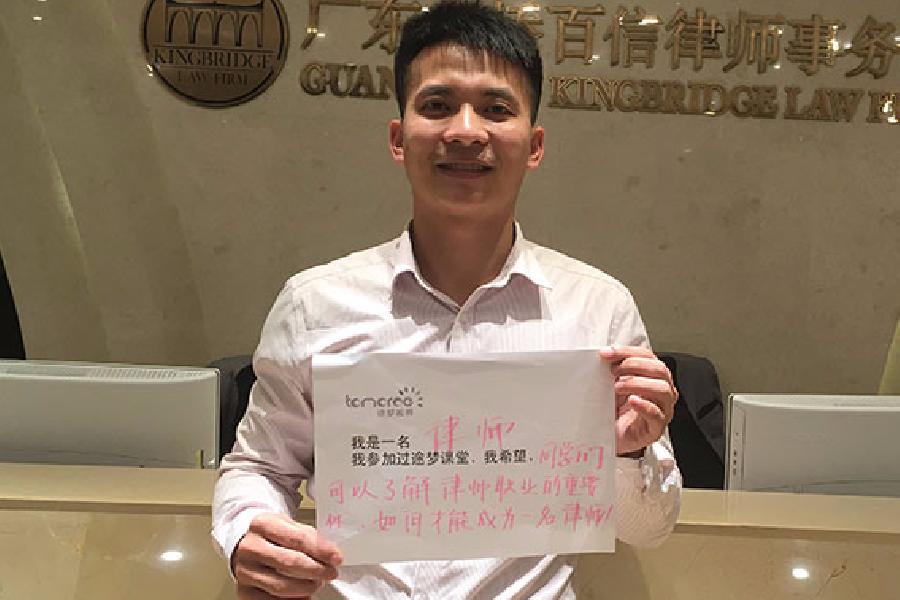 广东 百信律师事务
KINGBRIDGE
LAW FIRM
GUAN KINGBRIDGE LAW F
tomoroe
途梦教育
我是一名 律师
我参加过途梦课堂、我希望、同学们
可以了解律师职业的重要
性、如何才能成为一名律师!